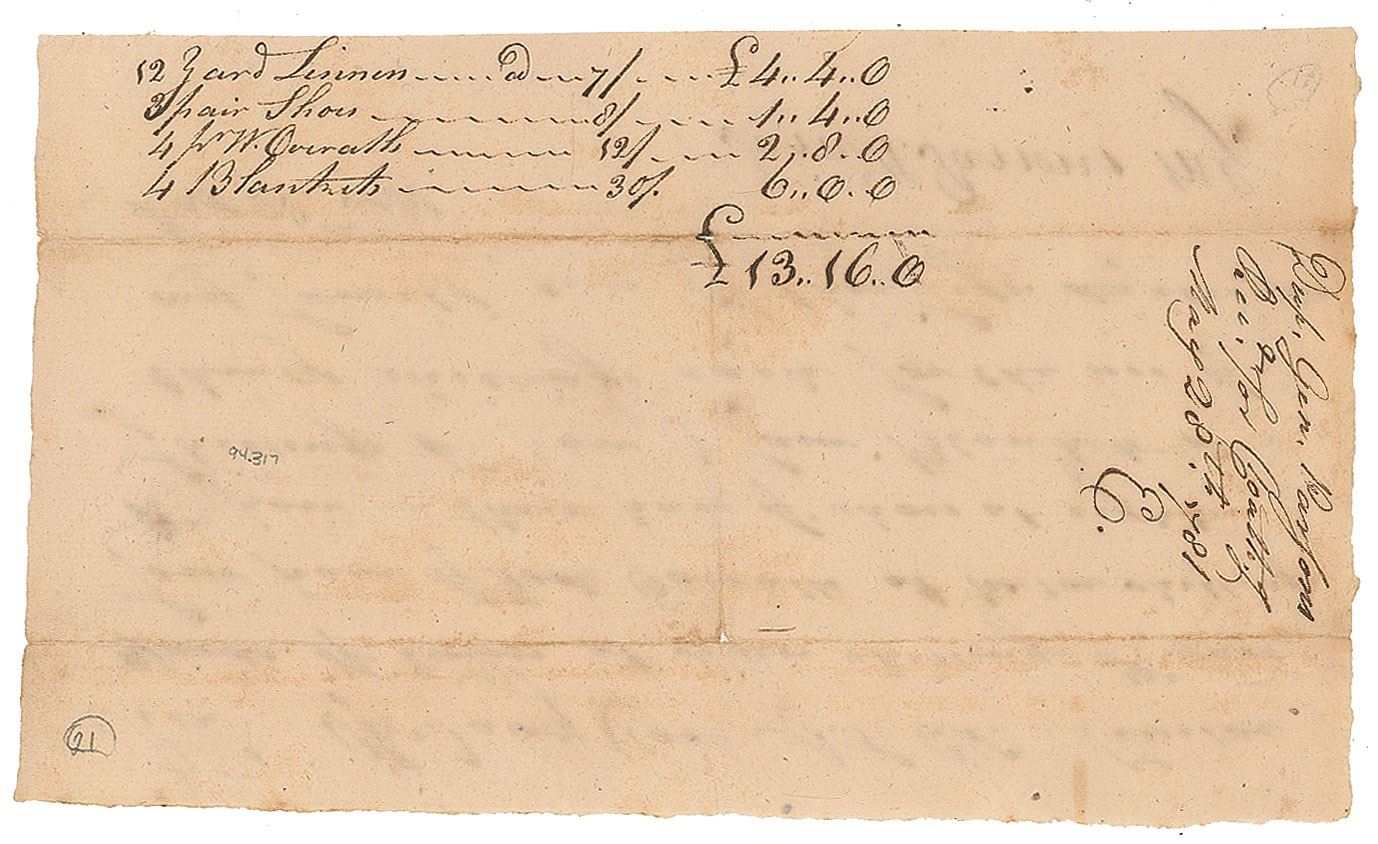 12 Yard Linnen @ 7/ £4..4..0
3 pair Shoes 8/ 1..4..0
4 pr W. Overalls 12/ 2..8..0
4 Blankets 30/. 6..0..0
£
£13..16..0
Gen. Parsons
Rec. for Cloathg
May 28th 1781
E.
C.
94.317
21